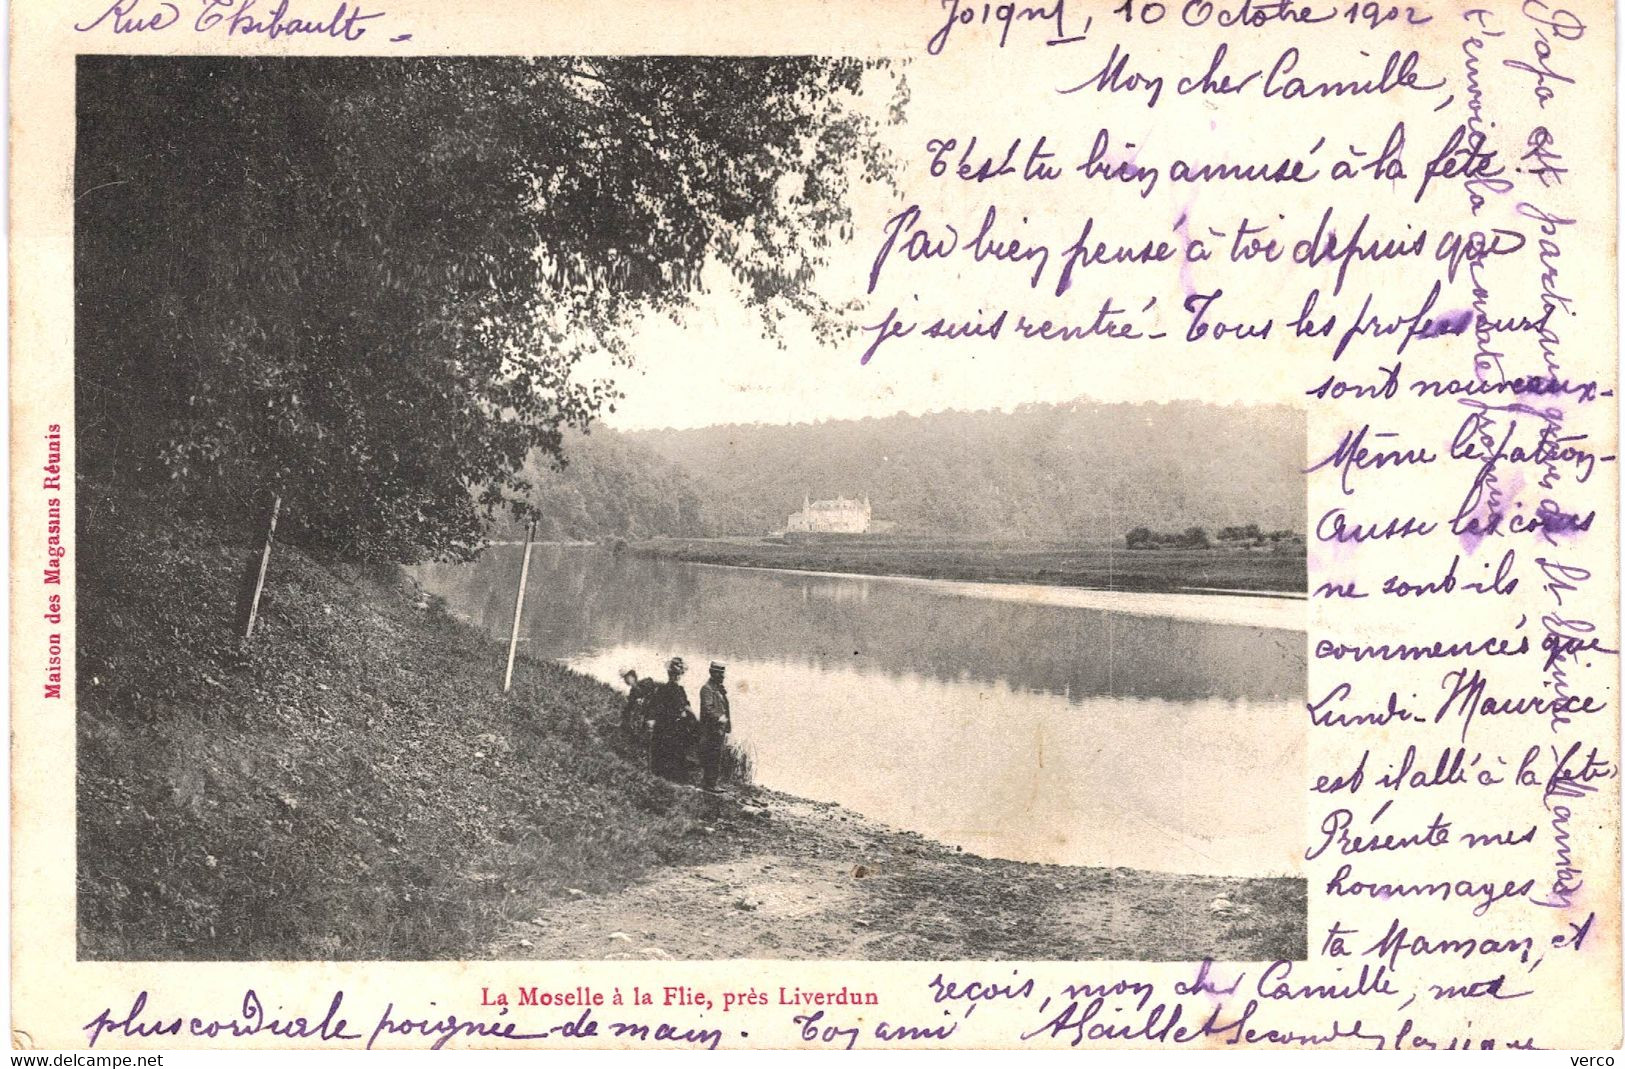 Rue Thibault -
Joigny, 10 Octobre 1902
Mon cher Camille,
T'es-tu bien amusé à la fête.
J'ai bien pensé à toi depuis que
je suis rentré - Tous les professeurs
sont nouveaux -
Même le patron -
Ausse les cours
ne sont-ils
commencés que
Lundi - Maurice
est il allé à la fête
Présente mes
hommages
ta Maman, et
reçois, mon cher Camille, mes
plus cordiale poignée de main. Ton ami
Seconde classique
Papa est parti aux grèves de St Étienne - Maman
t'envoie la
Maison des Magasins Réunis
La Moselle à la Flie, près Liverdun
verco